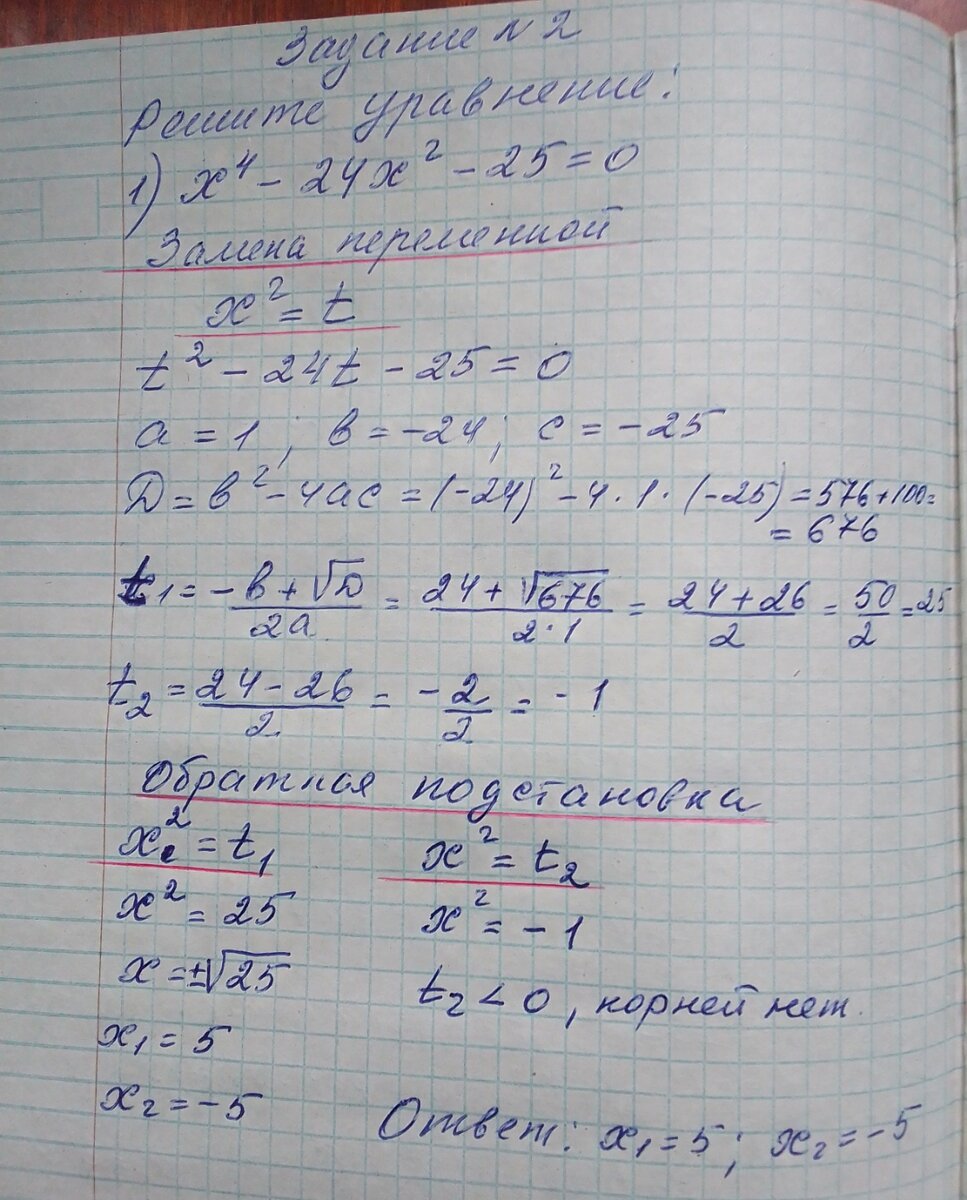 Задание №2
Решите уравнение:
1) x⁴ - 24x² - 25 = 0
Замена переменной
x² = t
t² - 24t - 25 = 0
a = 1; в = -24; c = -25
Д = в² - 4ac = (-24)² - 4 · 1 · (-25) = 576 + 100 =
= 676
t₁ = (-в + √D)/(2a) = (24 + √676)/(2·1) = (24 + 26)/2 = 50/2 = 25
t₂ = (24 - 26)/2 = -2/2 = -1
Обратная подстановка
x² = t₁ x² = t₂
x² = 25 x² = -1
x = ±√25 t₂ < 0, корней нет.
x₁ = 5
x₂ = -5
Ответ: x₁ = 5; x₂ = -5